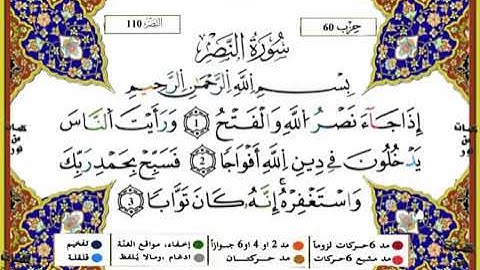 النصر 110
حزب 60
سُورَةُ النَّصْرِ
بِسْمِ اللَّهِ الرَّحْمَٰنِ الرَّحِيمِ
إِذَا جَآءَ نَصْرُ اللَّهِ وَالْفَتْحُ 1 وَرَأَيْتَ النَّاسَ
يَدْخُلُونَ فِي دِينِ اللَّهِ أَفْوَاجًا 2 فَسَبِّحْ بِحَمْدِ رَبِّكَ
وَاسْتَغْفِرْهُ ۚ إِنَّهُ كَانَ تَوَّابًا 3
كلمات من نور
كلمات من نور
مد 6 حركات لزوماً مد 2 او 4 او 6 جوازاً إخفاء، مواقع الغنّة تفخيم
مد مشبع 6 حركات مد حركتان ادغام، ومالا يُلفظ قلقلة